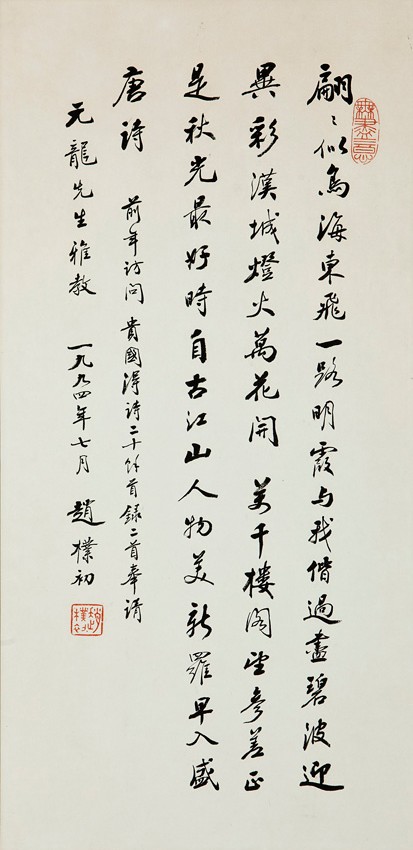 翩〻似鳥海東飛一路明霞与我偕過盡碧波迎
異彩漢城燈火萬花開 萬千樓閣望參差正
是秋光最好時自古江山人物美新羅早入盛
唐詩 前年訪問 貴國得詩二十餘首錄二首奉請
元龍先生雅教 一九九四年七月 趙樸初
趙樸初